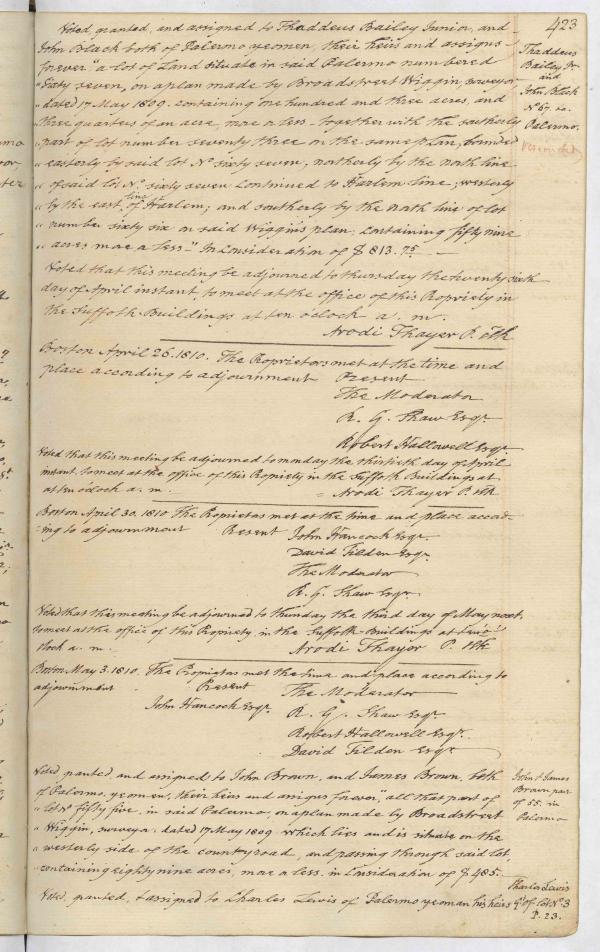 423
Voted, granted, and assigned to Thaddeus Bailey Junior, and
John Black both of Palermo yeomen, their heirs and assigns
forever "a lot of Land situate in said Palermo numbered
"Sixty seven, on a plan made by Broadstreet Wiggin, surveyor
"dated 17 May 1809. containing one hundred and three acres, and
"three quarters of an acre, more or less - together with the southerly
"part of lot number seventy three on the same plan, bounded
"easterly by said lot No. sixty seven; northerly by the north line
"of said lot No. sixty seven continued to Harlem line; westerly
"by the east line of Harlem; and southerly by the north line of lot
"number sixty six on said Wiggin's plan; containing fifty nine
"acres more or less -" In Consideration of $ 813.75 -
Thaddeus
Bailey Jr.
and
John Black
No. 67. &c.
Palermo.
Voted that this meeting be adjourned to thursday the twenty sixth
day of April instant, to meet at the office of this Propriety in
the Suffolk Buildings at ten o'clock a. m.
Arodi Thayer P. Clk
Boston April 26. 1810. The Proprietors met at the time and
place according to adjournment Present
The Moderator
R. G. Shaw Esqr.
Robert Hallowell Esqr.
Voted that this meeting be adjourned to monday the thirtieth day of April
instant, to meet at the office of this Propriety in the Suffolk Buildings at
at ten o'clock a. m. Arodi Thayer P. Clk
Boston April 30. 1810 The Proprietors met at the time and place accord-
-ing to adjournment Present John Hancock Esqr.
David Tilden Esqr.
The Moderator
R. G. Shaw Esqr.
Voted that this meeting be adjourned to thursday the third day of May next,
to meet at the office of this Propriety, in the Suffolk Buildings at ten o'
clock a. m. Arodi Thayer P. Clk
Boston May 3. 1810. The Proprietors met the time and place according to
adjournment Present The Moderator
John Hancock Esqr. R. G. Shaw Esqr.
Robert Hallowell Esqr.
David Tilden Esqr.
Voted, granted and assigned to John Brown, and James Brown, both
of Palermo, yeomen, their heirs and assigns forever, "all that part of
"lot No. fifty five, in said Palermo, on a plan made by Broadstreet
"Wiggin, surveyor, dated 17 May 1809 which lies and is situate on the
"westerly side of the county road, and passing through said lot,
"containing eighty nine acres, more or less. in Consideration of $ 485.
John & James
Brown part
of 55. in
Palermo
Voted, granted, & assigned to Charles Lewis of Palermo yeoman his heirs
Charles Lewis
of lot No. 3
P. 23.